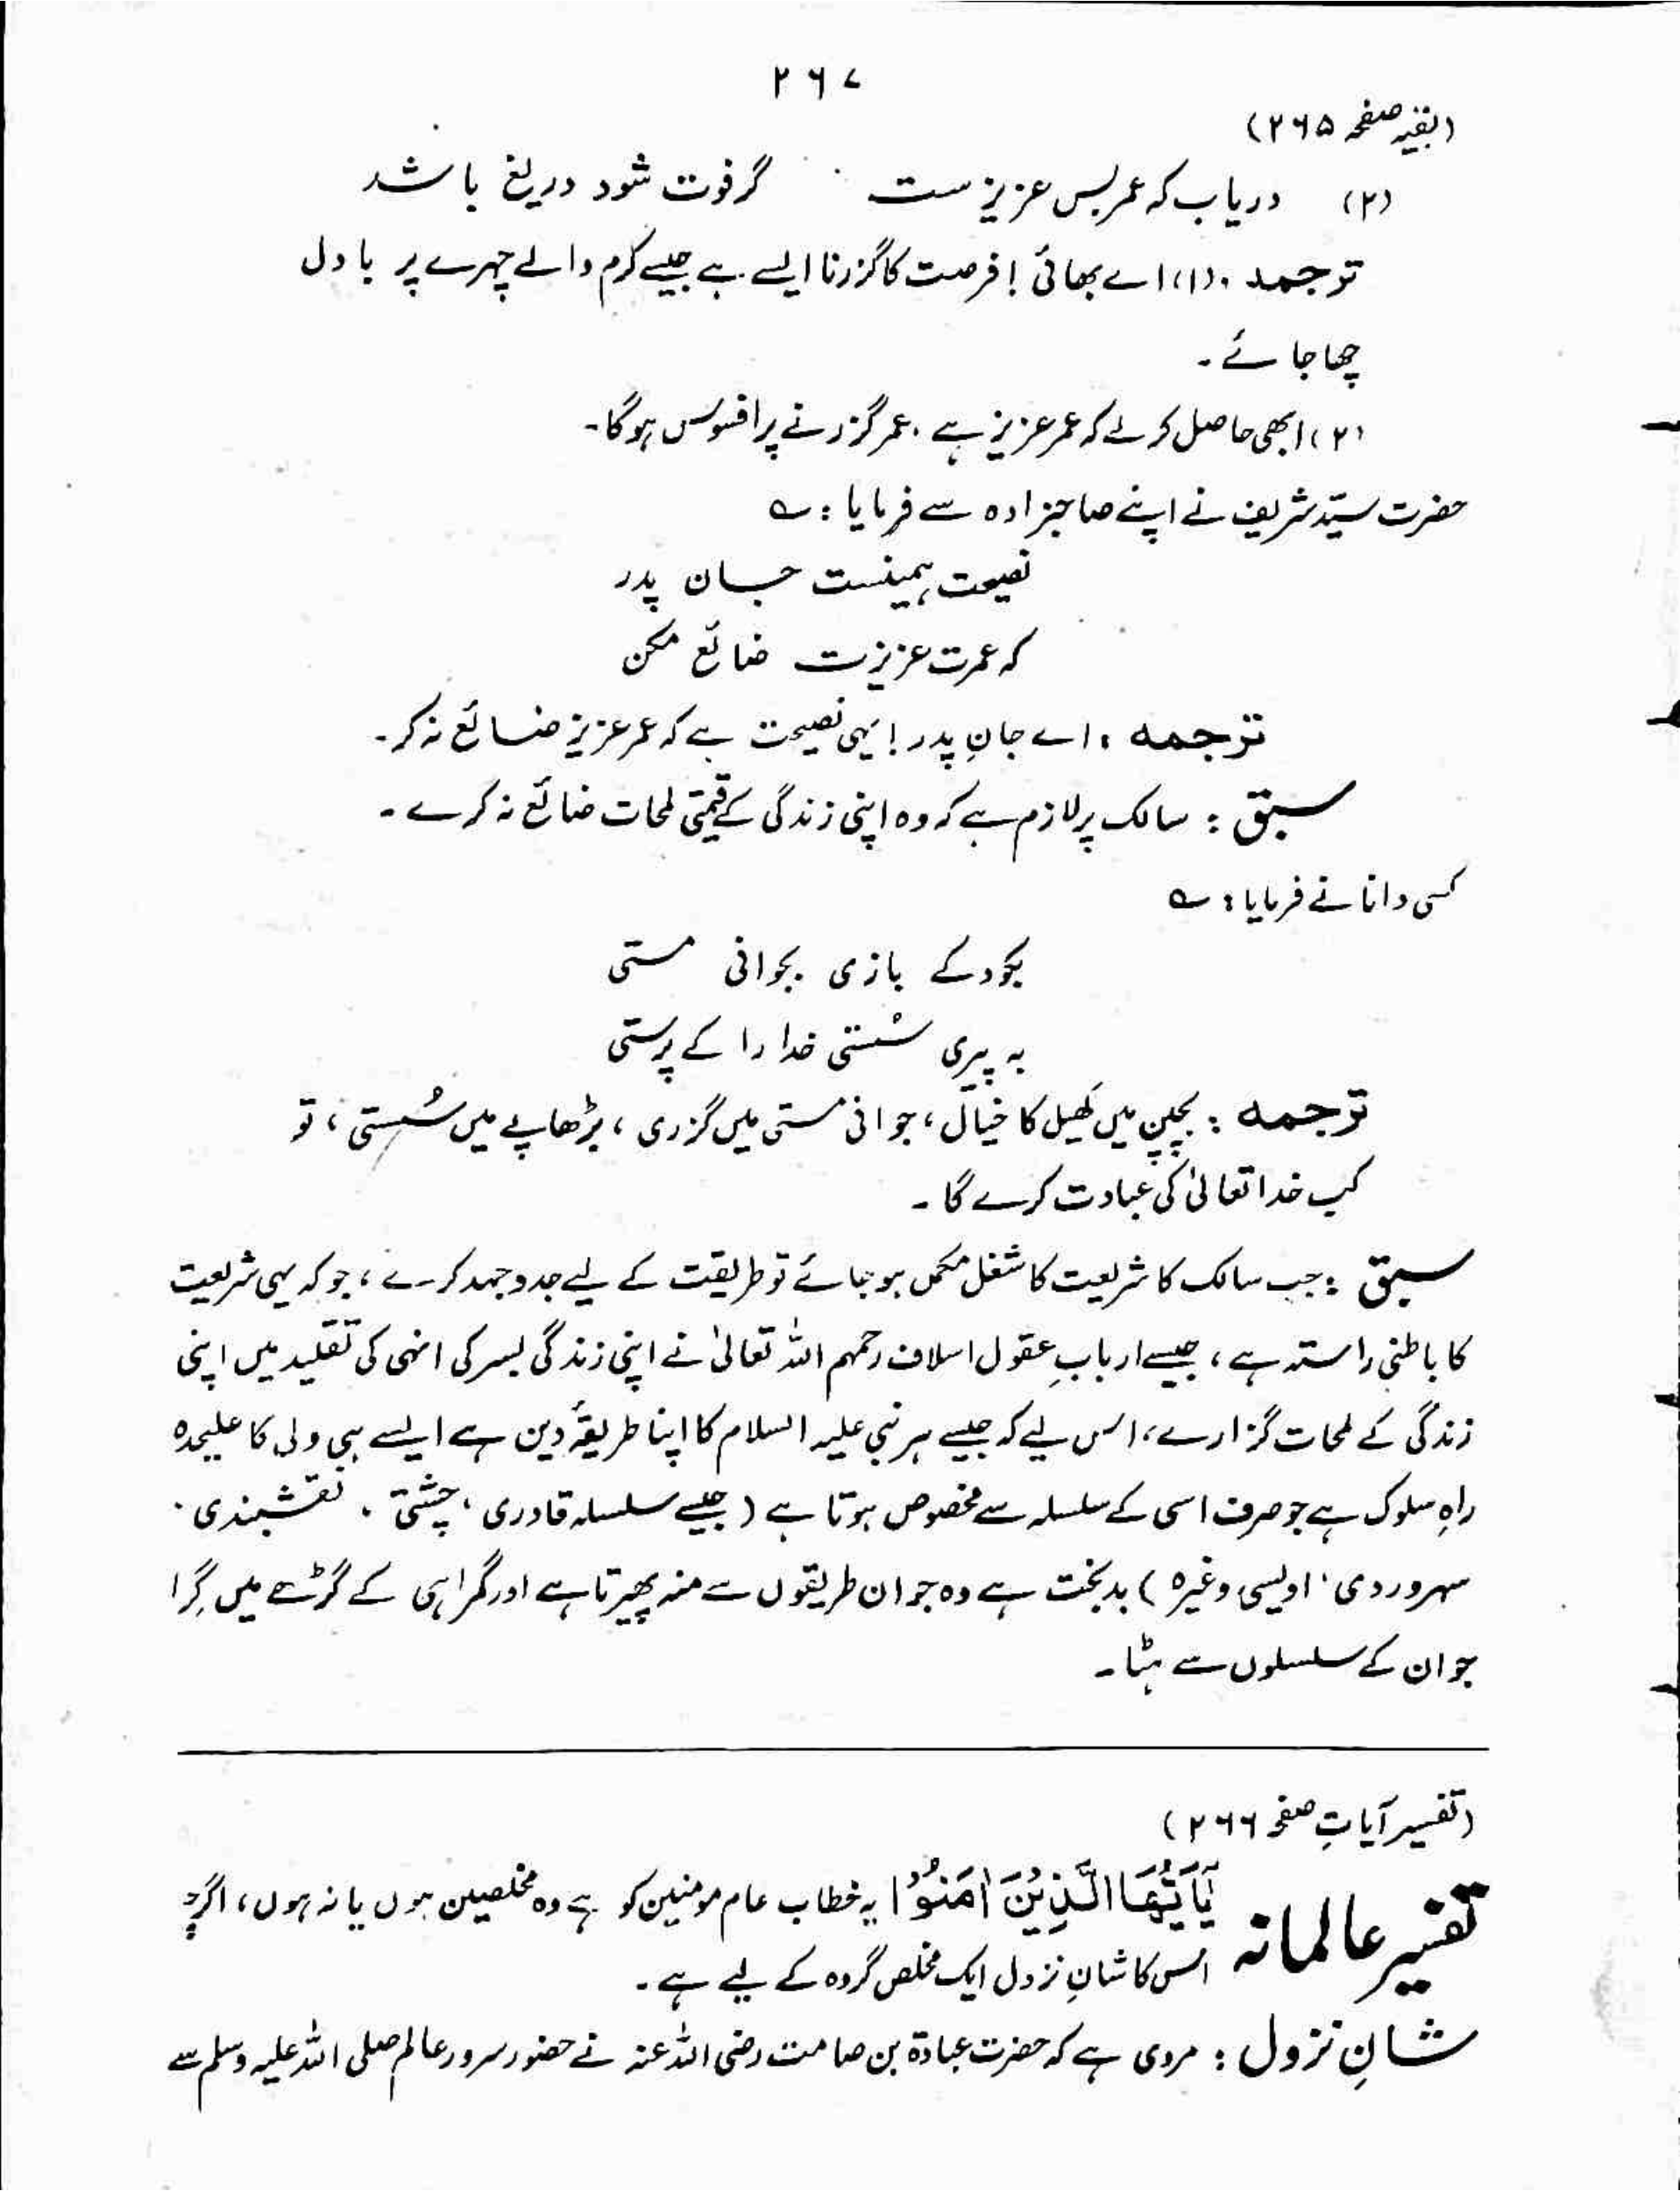 ۲۶۷
(بقیہ صفحہ ۲۶۵)
(۲) دریاب کہ عمر بس عزیز ست گر فوت شود دریغ باشد
ترجمہ ۔ (۱) اے بھائی ! فرصت کا گزرنا ایسے ہے جیسے کرم والے چہرے پر بادل
چھا جائے ۔
(۲) ابھی حاصل کر لے کہ عمر عزیز ہے ، عمر گزرنے پر افسوس ہوگا۔
حضرت سیّد شریف نے اپنے صاحبزادہ سے فرمایا : ؎
نصیحت ہمینست جان پدر
کہ عمرت عزیزست ضائع مکن
ترجمہ ، اے جانِ پدر ! یہی نصیحت ہے کہ عمر عزیز ضائع نہ کر ۔
سبق : سالک پر لازم ہے کہ وہ اپنی زندگی کے قیمتی لمحات ضائع نہ کرے ۔
کسی دانا نے فرمایا : ؎
بکودکے بازی بجوانی مستی
بہ پیری سُستی خدا را کے پرستی
ترجمہ : بچپن میں کھیل کا خیال ، جوانی مستی میں گزری ، بڑھاپے میں سُستی ، تو
کب خدا تعالیٰ کی عبادت کرے گا ۔
سبق : جب سالک کا شریعت کا شغل مکمل ہو جائے تو طریقت کے لیے جدوجہد کرے ، جو کہ یہی شریعت
کا باطنی راستہ ہے ، جیسے اربابِ عقول اسلاف رحمہم اللہ تعالیٰ نے اپنی زندگی بسر کی انہی کی تقلید میں اپنی
زندگی کے لمحات گزارے ، اس لیے کہ جیسے ہر نبی علیہ السلام کا اپنا طریقۂ دین ہے ایسے ہی ولی کا علیحدہ
راہِ سلوک ہے جو صرف اسی کے سلسلہ سے مخصوص ہوتا ہے (جیسے سلسلہ قادری ، چشتی ، نقشبندی ،
سہروردی ، اویسی وغیرہ) بدبخت ہے وہ جو ان طریقوں سے منہ پھیرتا ہے اور گمراہی کے گڑھے میں گِرا
جو ان کے سلسلوں سے ہٹا ۔
(تفسیر آیاتِ صفحہ ۲۶۶)
تفسیر عالمانہ یٰۤاَیُّهَا الَّذِیْنَ اٰمَنُوْا یہ خطاب عام مومنین کو ہے وہ مخلصین ہوں یا نہ ہوں ، اگرچہ
اس کا شانِ نزول ایک مخلص گروہ کے لیے ہے ۔
شانِ نزول : مروی ہے کہ حضرت عبادۃ بن صامت رضی اللہ عنہ نے حضور سرور عالم صلی اللہ علیہ وسلم سے